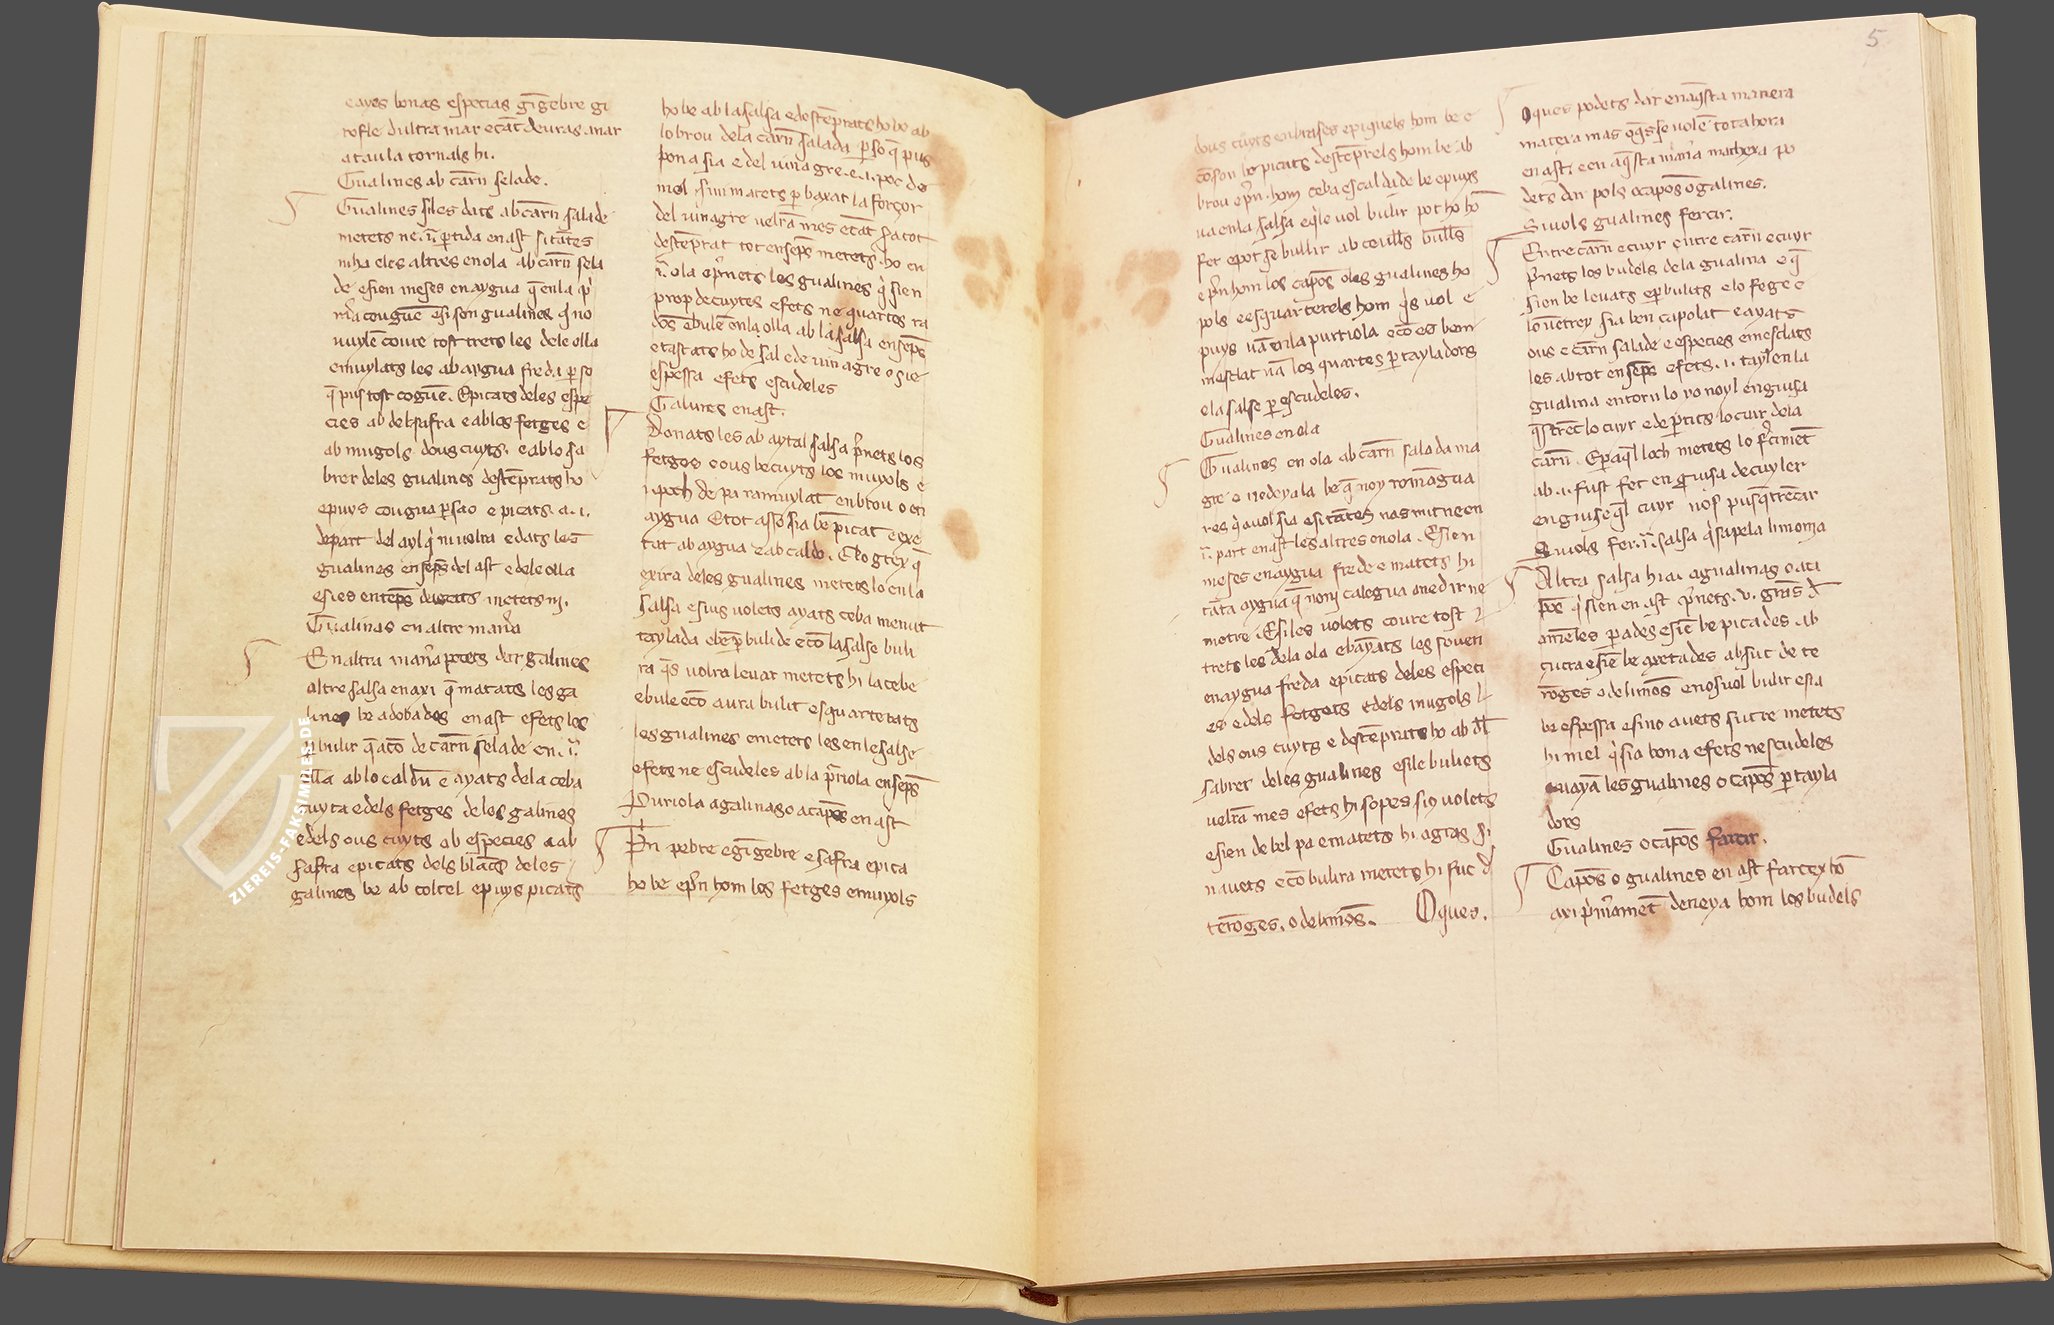 e ayes bonas especias gīgēbre gi
rofle dultra mar e cāt deuras anar
a taula tornals hi.
Gualines ab carn selade.
Gualines siles dats ab carn salade
metets ne .j. ptida en ast si tātes
niha e les altres en ola ab carn sela
de e sien meses en aygua q̄ enla
e si son gualines q̄ no
vuylē coure tost trets les dele olla
e muylats les ab aygua freda p so
q̄ pus tost coguē. E picats deles espe
cies ab del safra e ablos fetges e
ab mugols dous cuyts. e ablo sa
brer deles gualines destēprats ho
e puys cougua e picats .a.i.
depart del ayl e dats les
gualines ensēps del ast e dele olla
metets hi.
Gualinas en altre manā
En altra manā podets dar galines
altre salsa en axi q̄ matats les ga
lines be adobades en ast e fets les
bulir de carn selade en .j.
olla ab lo e ayats dela ceba
cuyta e dels fetges deles galines
e dels ous cuyts ab especies e ab
safra e picats dels blācs deles
galines be ab coltel e puys picats
ho be ab la salsa e destēprats ho be ab
lo brou dela carn salada p so q̄ pus
bona sia e del vinagre. e .i. poc de
mel si nin matets p baxar la forçor
del vinagre mes e cāt sa tot
destēprat tot ensēps metets ho en
.j. ola e p̄nets les gualines q̄ sien
prop de cuytes e fets ne quartes
e bulē enla olla ab la salsa ensēps
e tastats ho de sal e de vinagre o sie
espessa e fets escudeles
Galines en ast.
Donats les ab aytal salsa p̄nets los
fetges e ous be cuyts los muyols e
.i. poch de pa ramuylat en brou o en
aygua E tot asso sia be picat e
tat ab aygua e ab caldo. E lo grex q̄
exira deles gualines metets lo en la
salsa e sius volets ayats ceba menut
taylada e be p bulide e cō la salse buli
ra q̄s volra levar metets hi la cebe
e bule e cō aura bulit esquarterats
les gualines e metets les en le salse
e fets ne escudeles ab la ensēps
Puriola a galinas o a capōs en ast
Pn pebre e gīgebre e safra e pica
ho be e pn hom los fetges e muyols
dous cuyts en brases e hom be e
cō son be picats destēprels hom be ab
brou e pn hom ceba escaldade be e puys
va en la salsa e qi le vol bulir pot ho hō
fer e pot se bullir ab bulls
e pn hom los capōs o les gualines ho
pols e esquarterels hom q̄s vol e
puys vā en la puriola e cō es ben
mesclat vā los quartes p tayladors
e la salse p escudeles.
Gualines en ola
Gualines en ola ab carn salada ma
gre e nedeyala be q̄ noy romāgua
res q̄ avol sia e si tātes nas mit ne en
.j. part en ast les altres en ola. E sien
meses en aygua frede e matets hi
tāta aygua q̄ noni calegua anedir ne
metre. E si les volets coure tost
trets les dela ola e bayats les soven
en aygua freda e picats deles espeti
es e dels fetgets e dels mugols
dels ous cuyts e destēprats ho ab
sabrer deles gualines e si le buliets
mes e fets hi sopes sio volets
e sien de bel pa e matets hi agras si
navets e cō bulira metets hi suc d
terōges. o de limōs. Oques.
5
Oques podets dar en aqsta manera
matexa mas se volē tota hora
en ast e en aqsta manā matexa po
dets dar pols o capōs o galines.
Si vols gualines fercir.
Entre carn e cuyr entre carn e cuyr
p̄nets los budels dela gualina e q̄
sien be levats e p bulits e lo fege e
lo vētrey sia ben capolat e ayats
ous e carn salade e especies e mesclats
les ab tot ensēps e fets .i. tayl en la
gualina entorn lo ronoyl en guisa
q̄ strēc lo cuyr e de ptits lo cuir dela
carn. E p aql loch metets lo
ab .i. fust fet en guisa de cuyler
en guise q̄l cuyr nos pusq̄ trēcar
Si vols fer .j. salsa q̄ sapela limonia
Altra salsa hi a .i. a gualinas o a ca
pōs q̄ sien en ast p̄nets .v. grās d
amēles parades e siē be picades ab
cucra e siē be axetades ab suc de te
rōges o de limōs e nos vol bulir e sia
be espessa e si no avets sucre metets
hi mel q̄ sia bona e fets ne scudeles
e vayā les gualines o capōs p tayla
dors
Gualines o capōs farcir.
Capōs o gualines en ast farcex hō
axi p̄mamēt deneya hom los budels
ZIEREIS-FAKSIMILES.DE